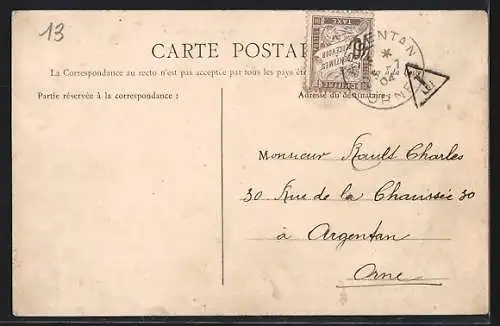 13
CARTE POSTALE
La Correspondance au recto n'est pas acceptée par tous les pays
Partie réservée à la correspondance :
Adresse du destinataire :
10
CENTIMES
À PERCEVOIR
TAXE
ARGENTAN
ORNE
04
T
Monsieur Rault Charles
30 Rue de la Chaussée 30
à Argentan
Orne